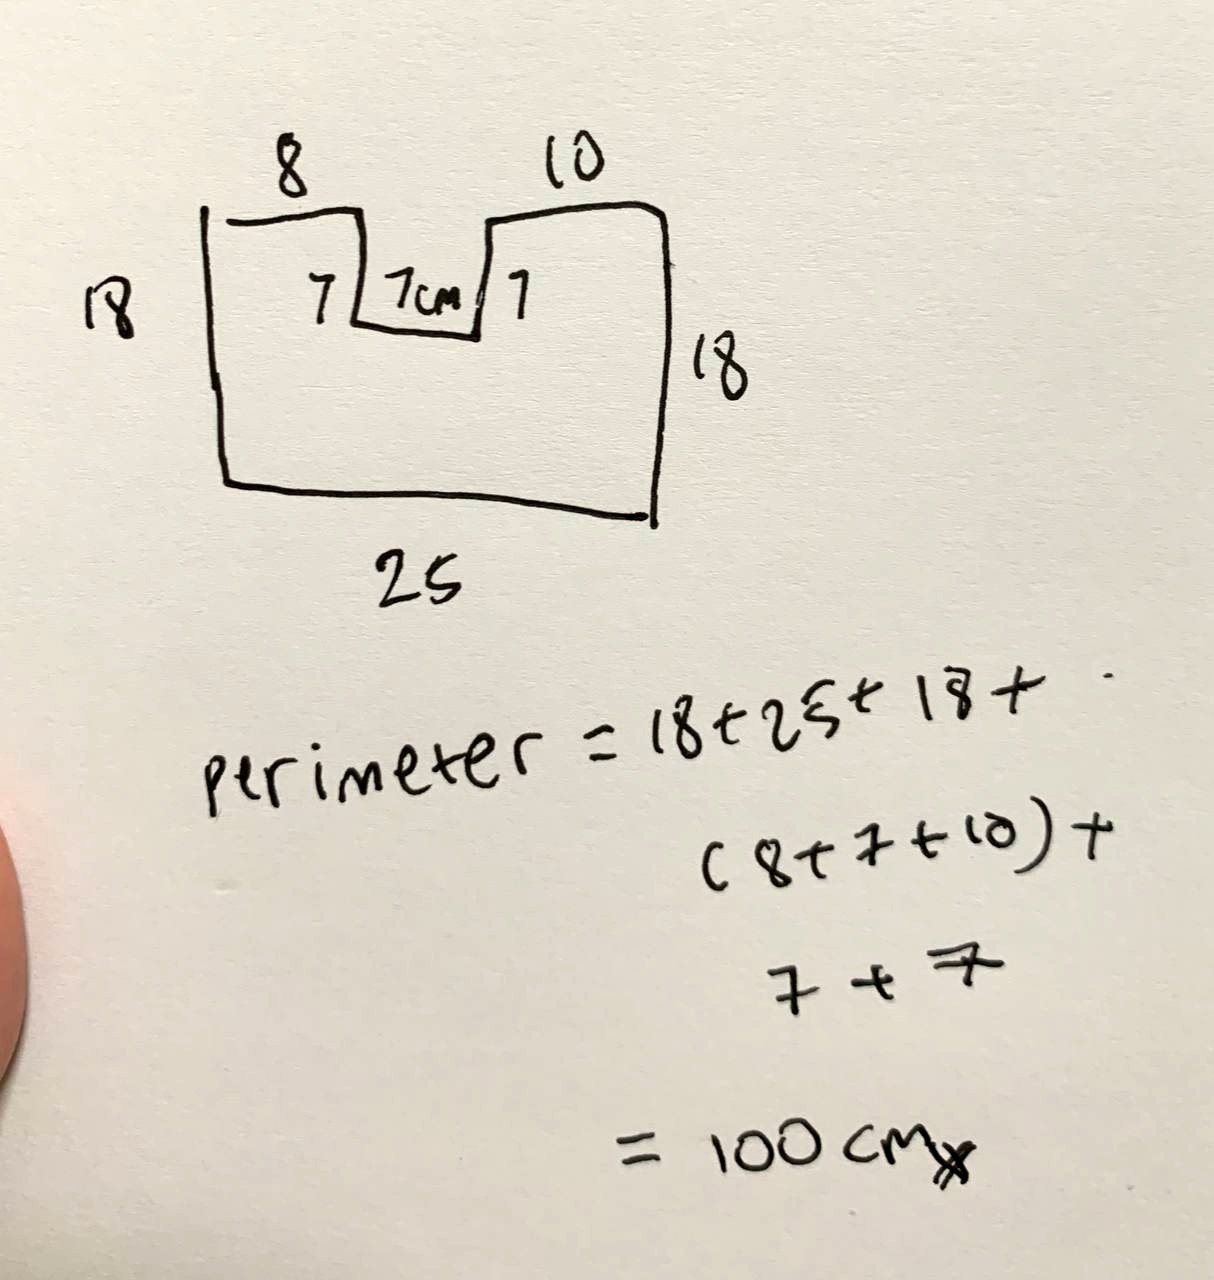 8 10
18 7 7cm 7
18
25
perimeter = 18+25+18+
(8+7+10)+
7+7
= 100 cm